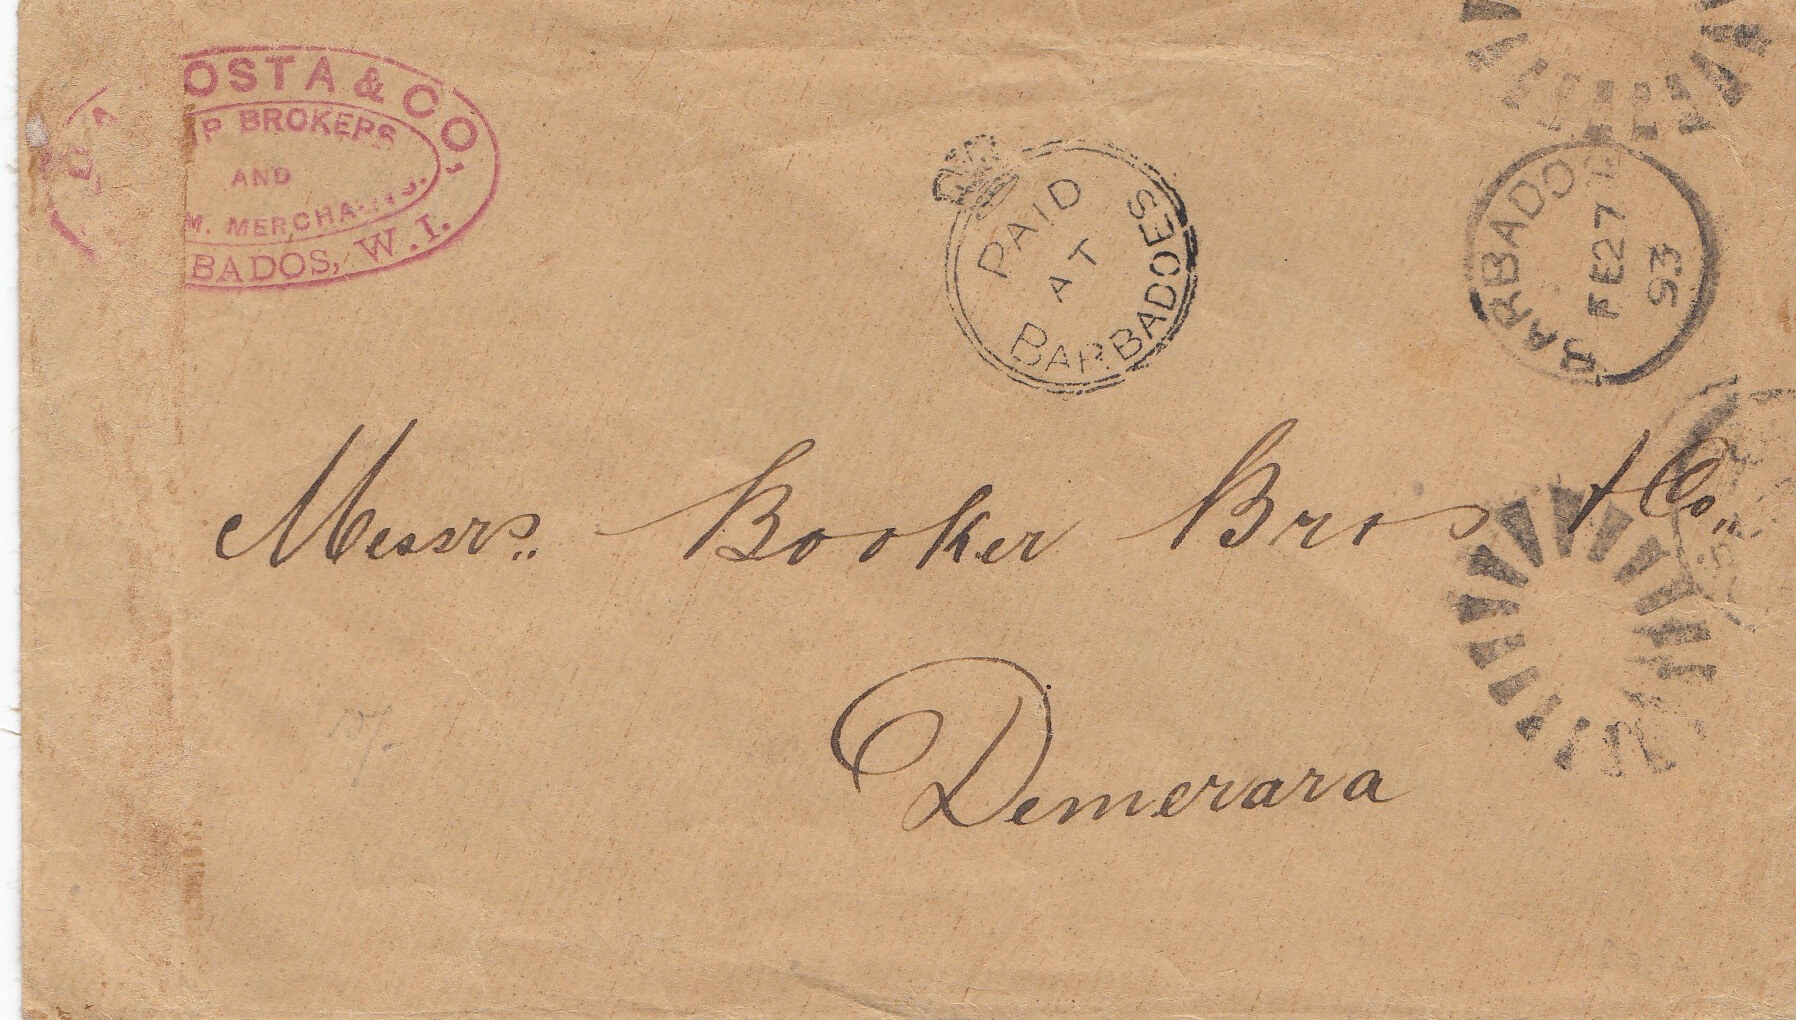 OSTA & CO,
IP BROKERS
AND
M. MERCHANTS.
BADOS, W. I.
PAID
AT
BARBADOES
BARBADOS
FE27
93
Messrs. Booker Bros & Co.,
Demerara